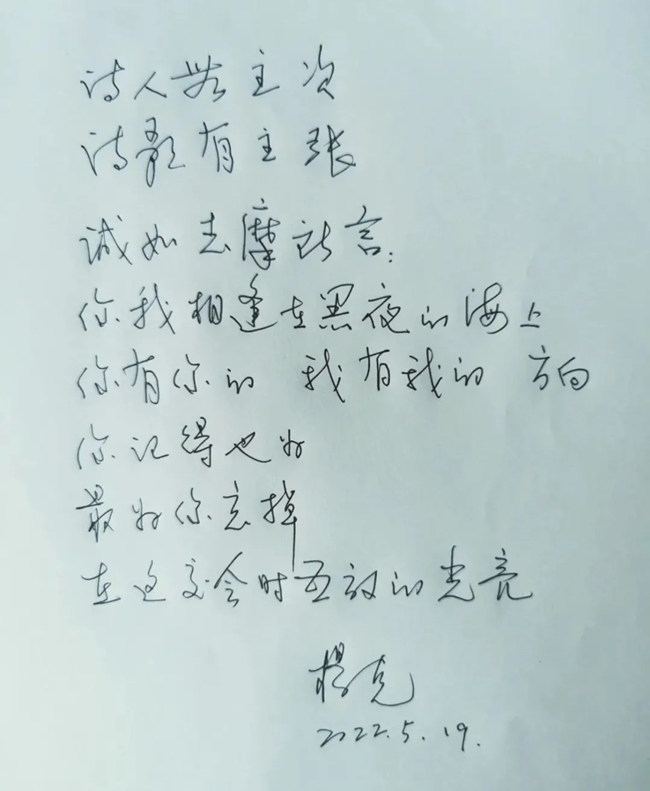 诗人无主次
诗歌有主张
诚如志摩所言：
你我相逢在黑夜的海上
你有你的 我有我的 方向
你记得也好
最好你忘掉
在这交会时互放的光亮
杨克
2022.5.19.